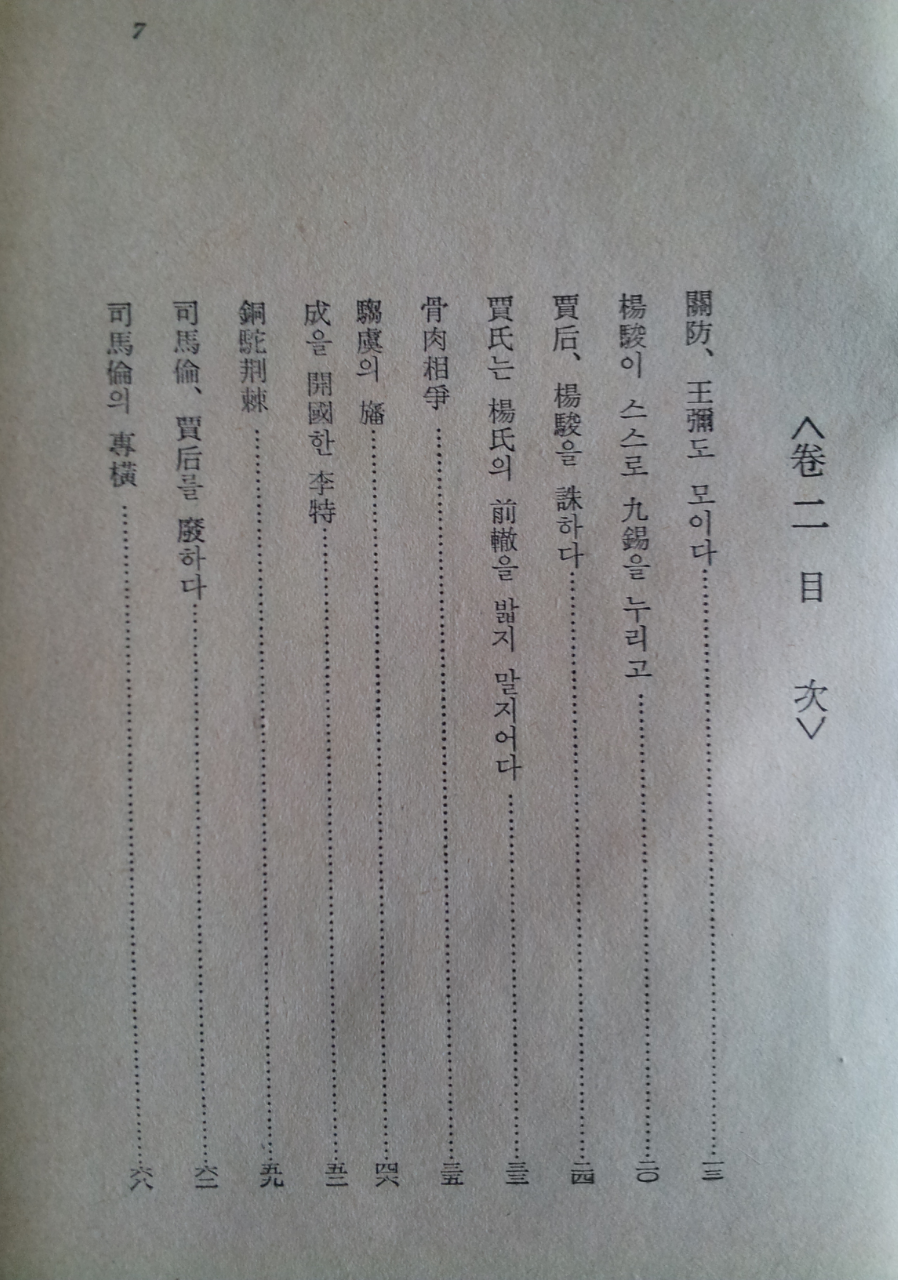 7
<卷二 目 次>
關防、王彌도 모이다……一三
楊駿이 스스로 九錫을 누리고……二〇
賈后、楊駿을 誅하다……二四
賈氏는 楊氏의 前轍을 밟지 말지어다……三三
骨肉相爭……三五
騶虞의 旛……四六
成을 開國한 李特……五二
銅駝荆棘……五九
司馬倫、賈后를 廢하다……六二
司馬倫의 專橫……六八